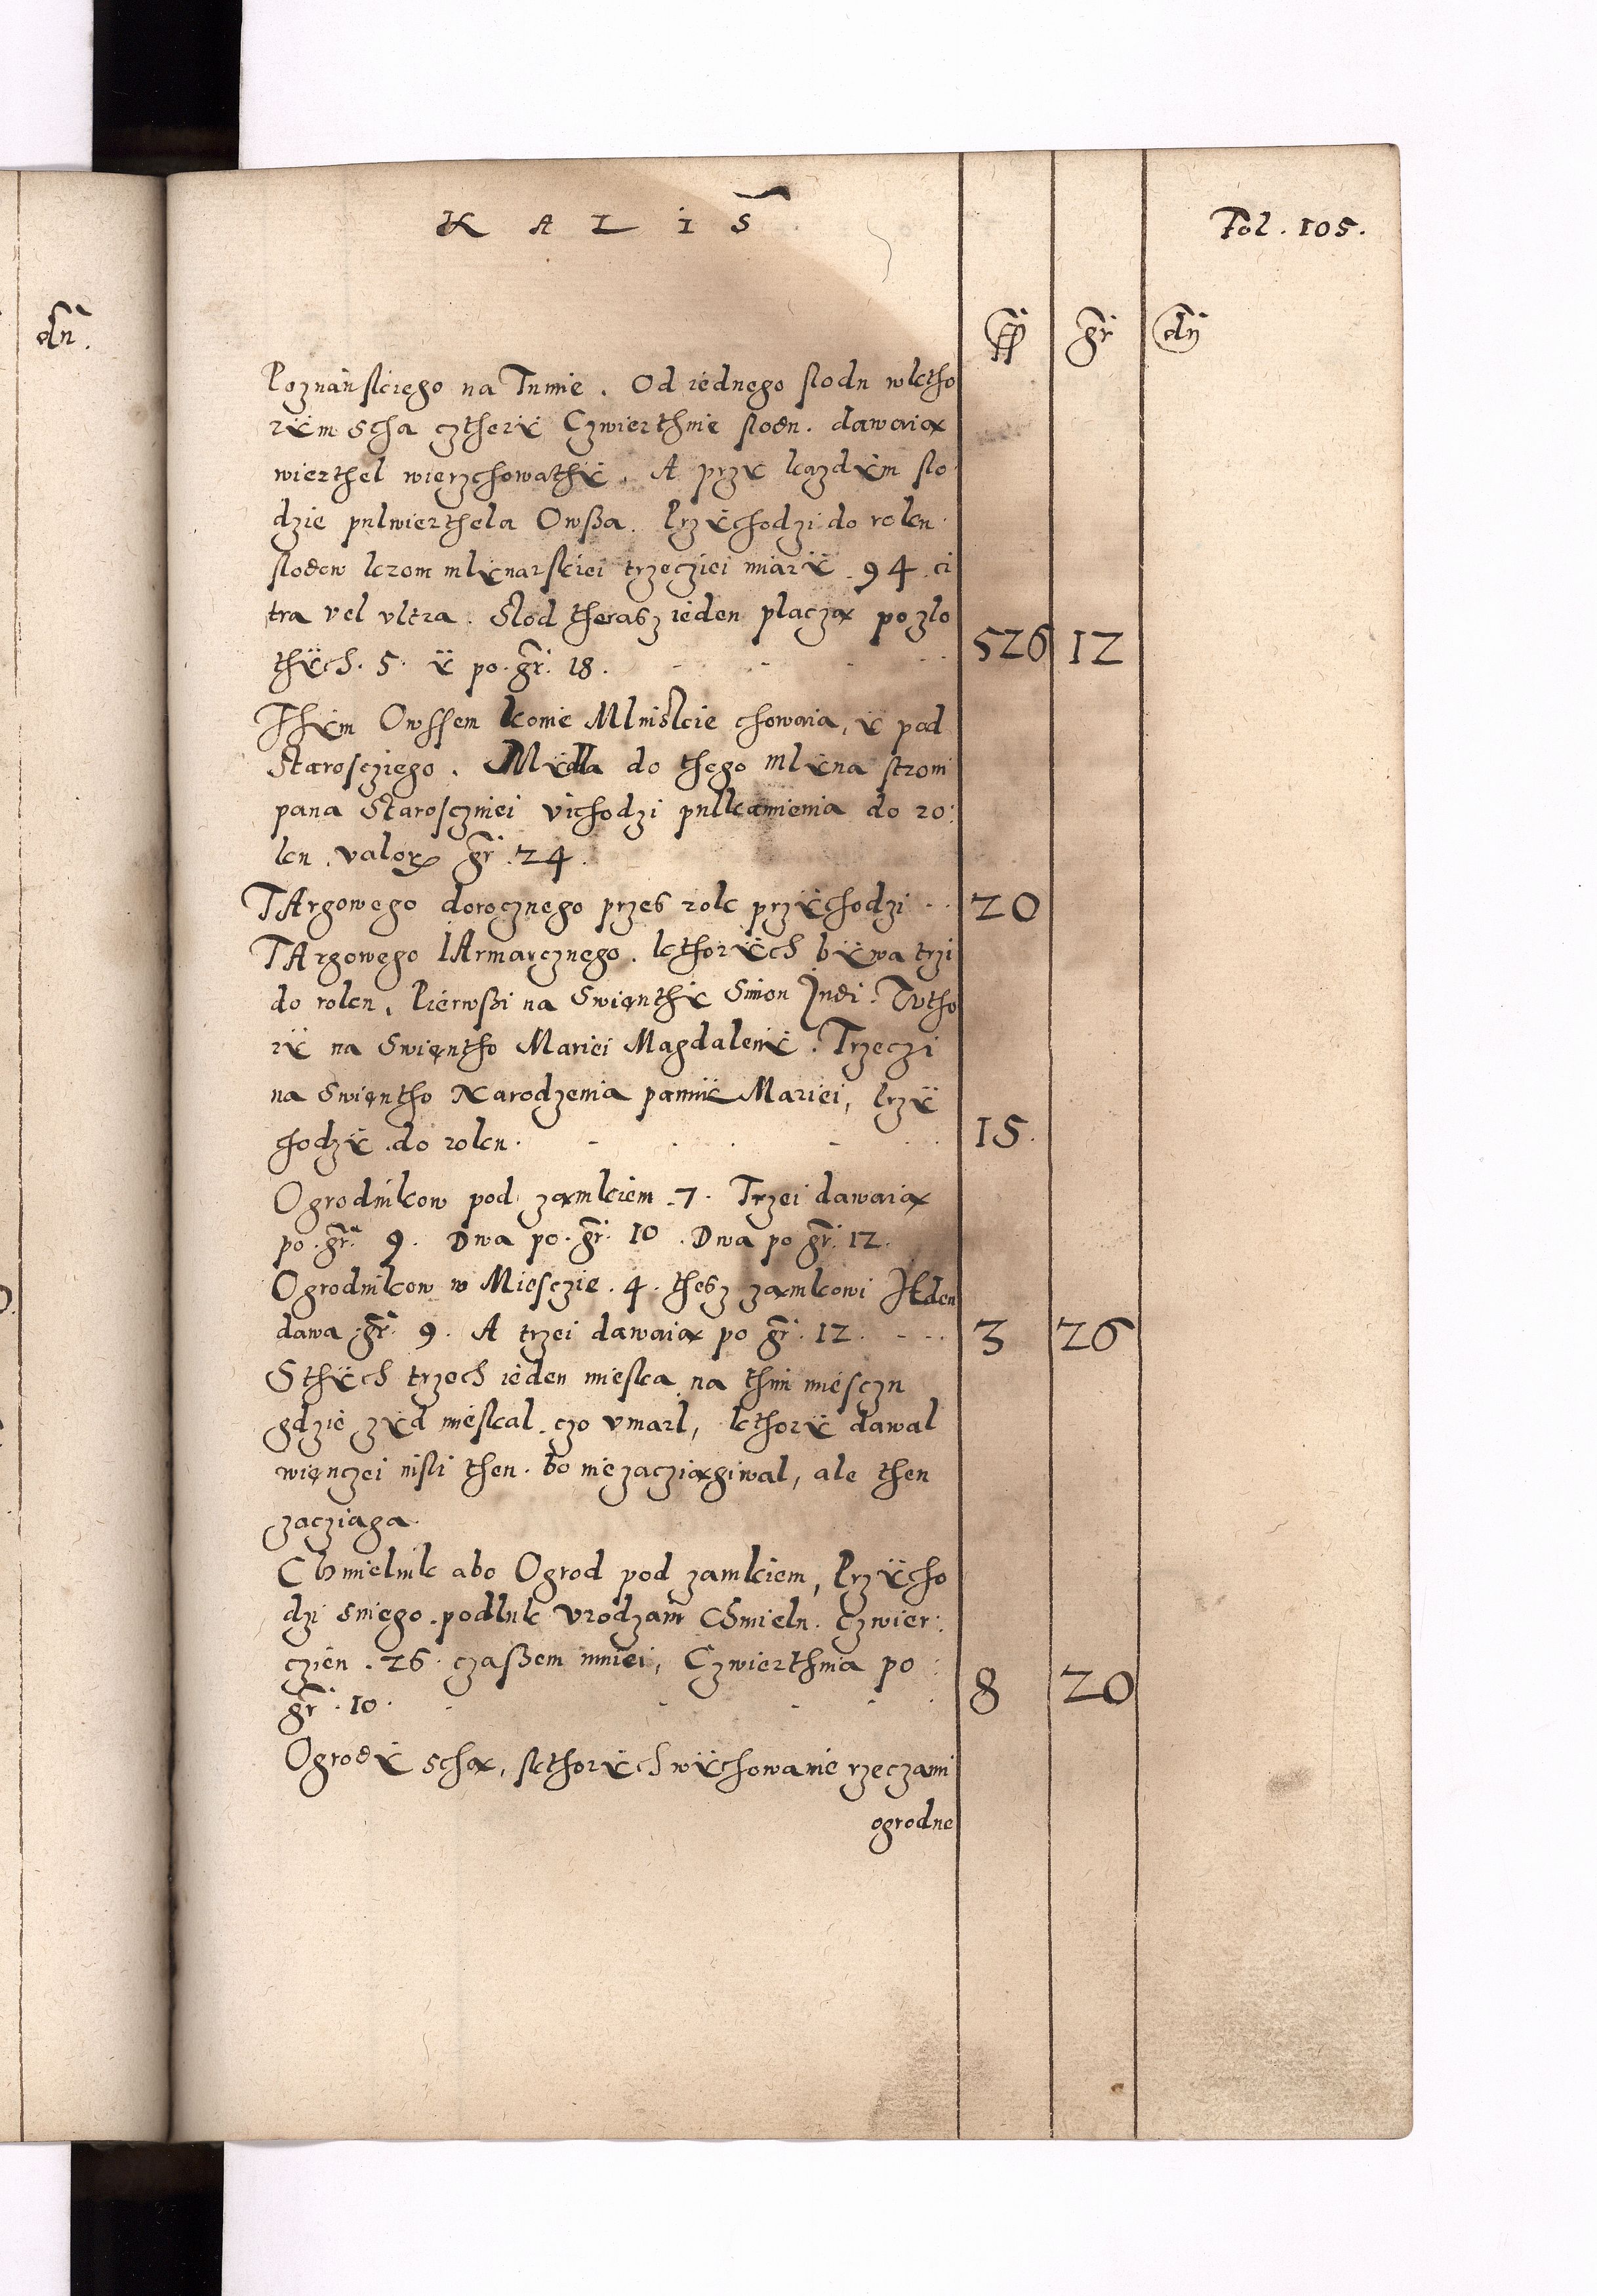 KALIS
Fol. 105.
dn.
gr
dn
Poznanskiego na Tumie. Od iednego slodu wktho
rym scha cztery Czwierthnie slodu. dawaią
wierthel wierzchowathy. A przy kazdym slo
dzie pulwierthela Owßa. Przychodzi do roku
slodow krom mlynarskiei trzecziei miary . 94 . ci
tra vel vltra. Slod therasz ieden placzą po zlo
thych . 5 . y po . gr. 18 .
526 12
Thym Owssem konie Mlinskie chowaia, y pod
Staroscziego. Mydla do thego mlyna stroni
pana Starosczinei vichodzi pulkamienia do ro:
ku . valor gr . 24 .
TArgowego dorocznego przes rok przychodzi
20
TArgowego IArmarcznego. kthorych bywa trzi
do roku. Pierwßi na Swienthy Simon Judi. Wtho
ry na Swientho Mariei Magdaleny. Trzeczi
na Swientho Narodzenia panny Mariei, Przy
chodzy do roku.
15.
Ogrodnikow pod zamkiem . 7 . Trzei dawaią
po . gr. 9 . Dwa po . gr. 10 . Dwa po gr. 12 .
Ogrodnikow w Miesczie . 4 . thesz zamkowi Ieden
dawa . gr. 9 . A trzei dawaią po gr. 12 .
3 26
Sthych trzech ieden mieska na thim miesczu
gdzie zyd mieskal . czo vmarl, kthory dawal
wienczei nisli then . bo nie zacziągiwal, ale then
zacziaga.
Chmielnik abo Ogrod pod zamkiem, Przycho
dzi sniego . podluk vrodzaiu Chmielu. Czwier:
czien . 26 . czaßem mniei, Czwierthnia po:
gr . 10 .
8 20
Ogrody schą, skthorych wychowanie rzeczami
ogrodne